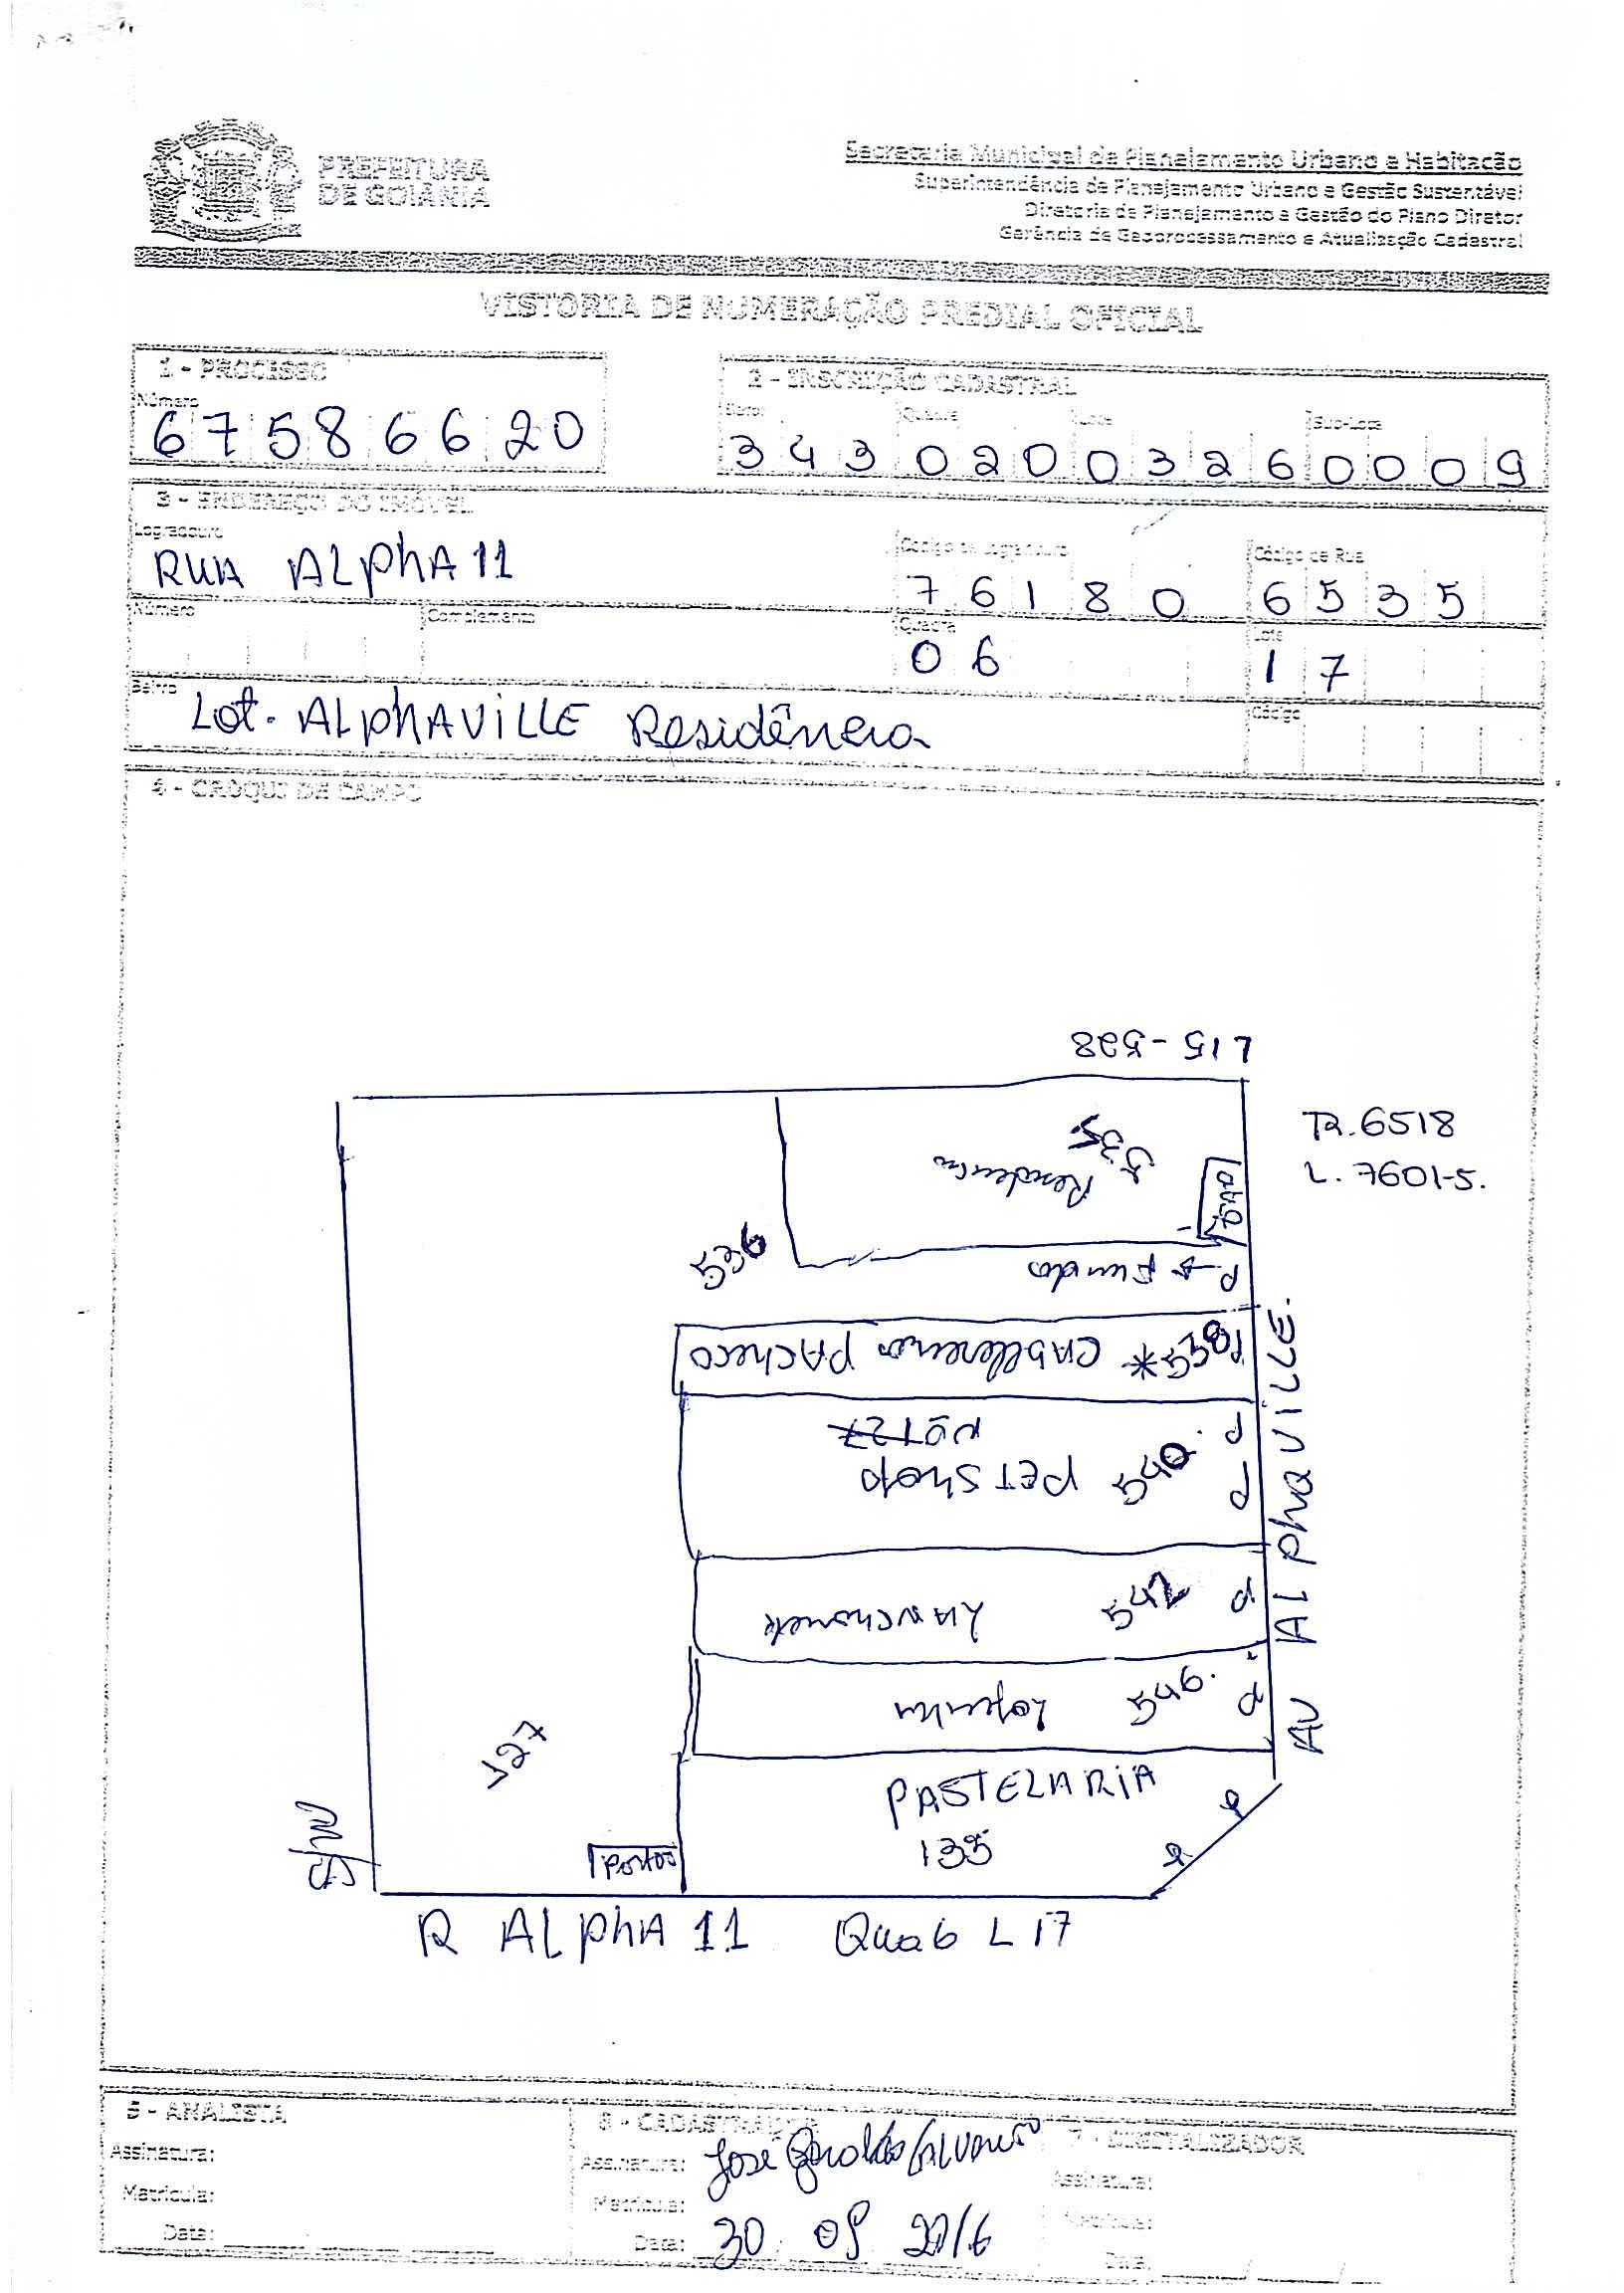 PREFEITURA
DE GOIÂNIA
Secretaria Municipal de Planejamento Urbano e Habitação
Superintendência de Planejamento Urbano e Gestão Sustentável
Diretoria de Planejamento e Gestão do Plano Diretor
Gerência de Geoprocessamento e Atualização Cadastral
VISTORIA DE NUMERAÇÃO PREDIAL OFICIAL
1 - PROCESSO
Número
67586620
2 - INSCRIÇÃO CADASTRAL
Setor Quadra Lote Sub-Lote
343 020 0326 0009
3 - ENDEREÇO DO IMÓVEL
Logradouro
RUA ALPhA 11
Código de Logradouro
76180
Código de Rua
6535
Número
Complemento
Quadra
06
Lote
17
Bairro
Lot. ALphAVILLE Residência
Código
4 - CROQUI DE CAMPO
L15 - 598
TR.6518
L. 7601-5.
535.
Residencia
536
P → Fundos
538* CABELEREIROS PACHECO
Nº 127
PET Shop 540.
P P
LANchonete 542 P
546. P
127
PASTELARIA
135
Portão
AV ALphaVILLE.
R ALphA 11 Qua 6 L 17
5 - ANALISTA
Assinatura:
Matrícula:
Data:
6 - CADASTRADOR
Assinatura: José Geraldo
Matrícula:
Data: 30 09 2016
7 - DIGITALIZADOR
Assinatura:
Matrícula:
Data: